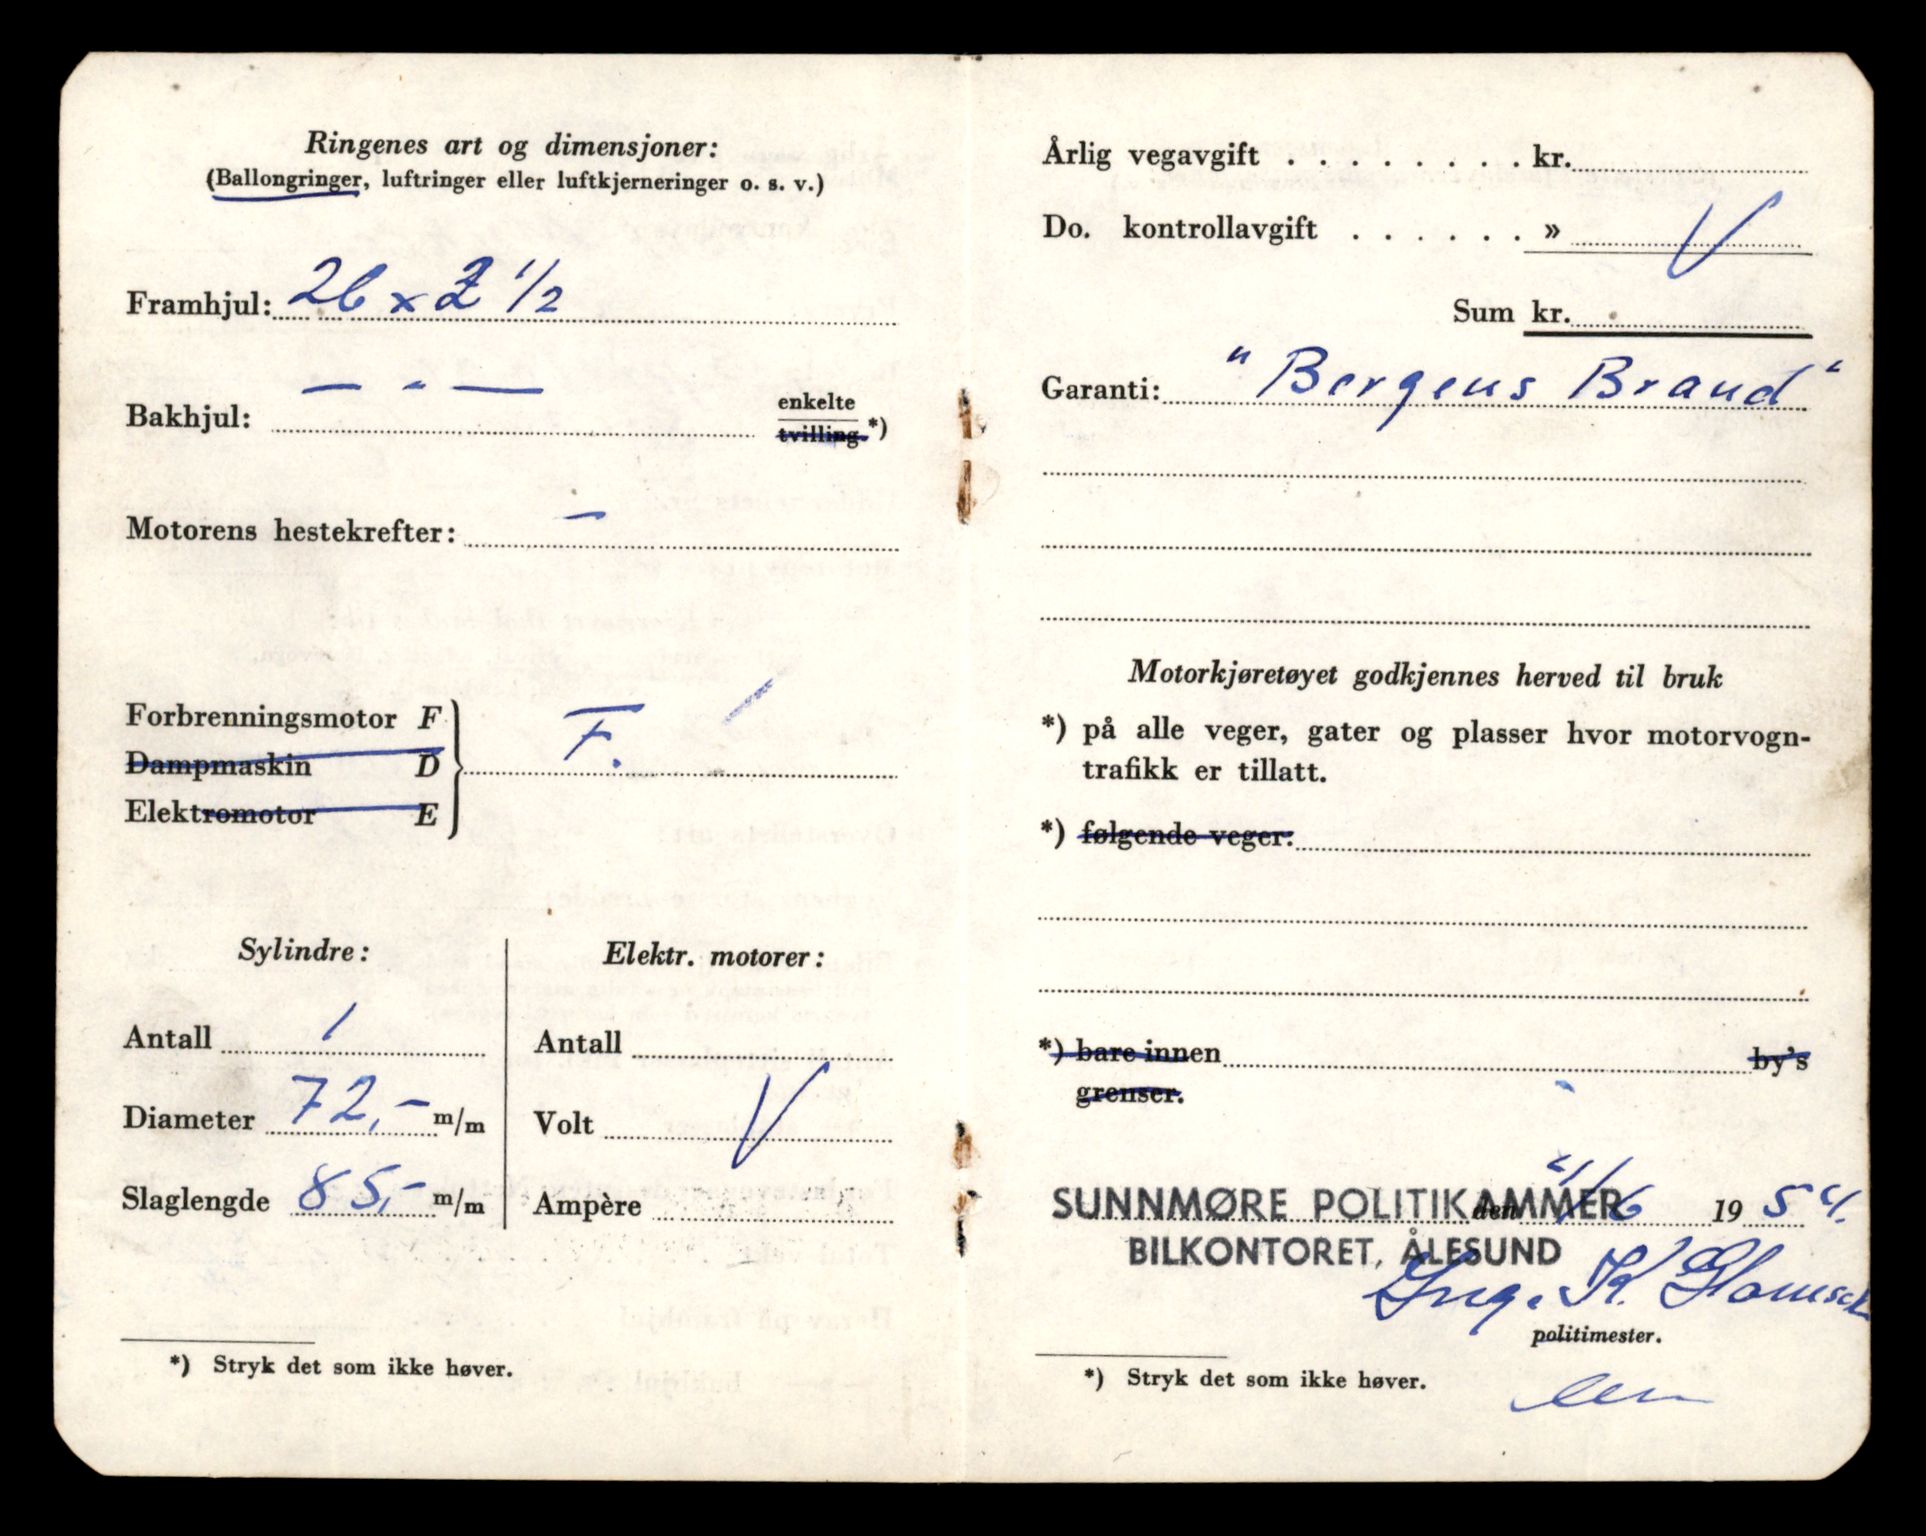 Ringenes art og dimensjoner:
(Ballongringer, luftringer eller luftkjerneringer o. s. v.)
Framhjul: 26 x 2 1/2
Bakhjul: — " — enkelte
tvilling *)
Motorens hestekrefter: —
Forbrenningsmotor F
Dampmaskin D F.
Elektromotor E
Sylindre:
Antall 1
Diameter 72,- m/m
Slaglengde 85,- m/m
Elektr. motorer:
Antall
Volt
Ampère
*) Stryk det som ikke høver.
Årlig vegavgift . . . . . . . . kr.
Do. kontrollavgift . . . . . . »
Sum kr.
Garanti: "Bergens Brand"
Motorkjøretøyet godkjennes herved til bruk
*) på alle veger, gater og plasser hvor motorvogn-
trafikk er tillatt.
*) følgende veger:
*) bare innen by's
grenser.
SUNNMØRE POLITIKAMMER den 11/6 19 54.
BILKONTORET, ÅLESUND
Ing. K.
politimester.
*) Stryk det som ikke høver.